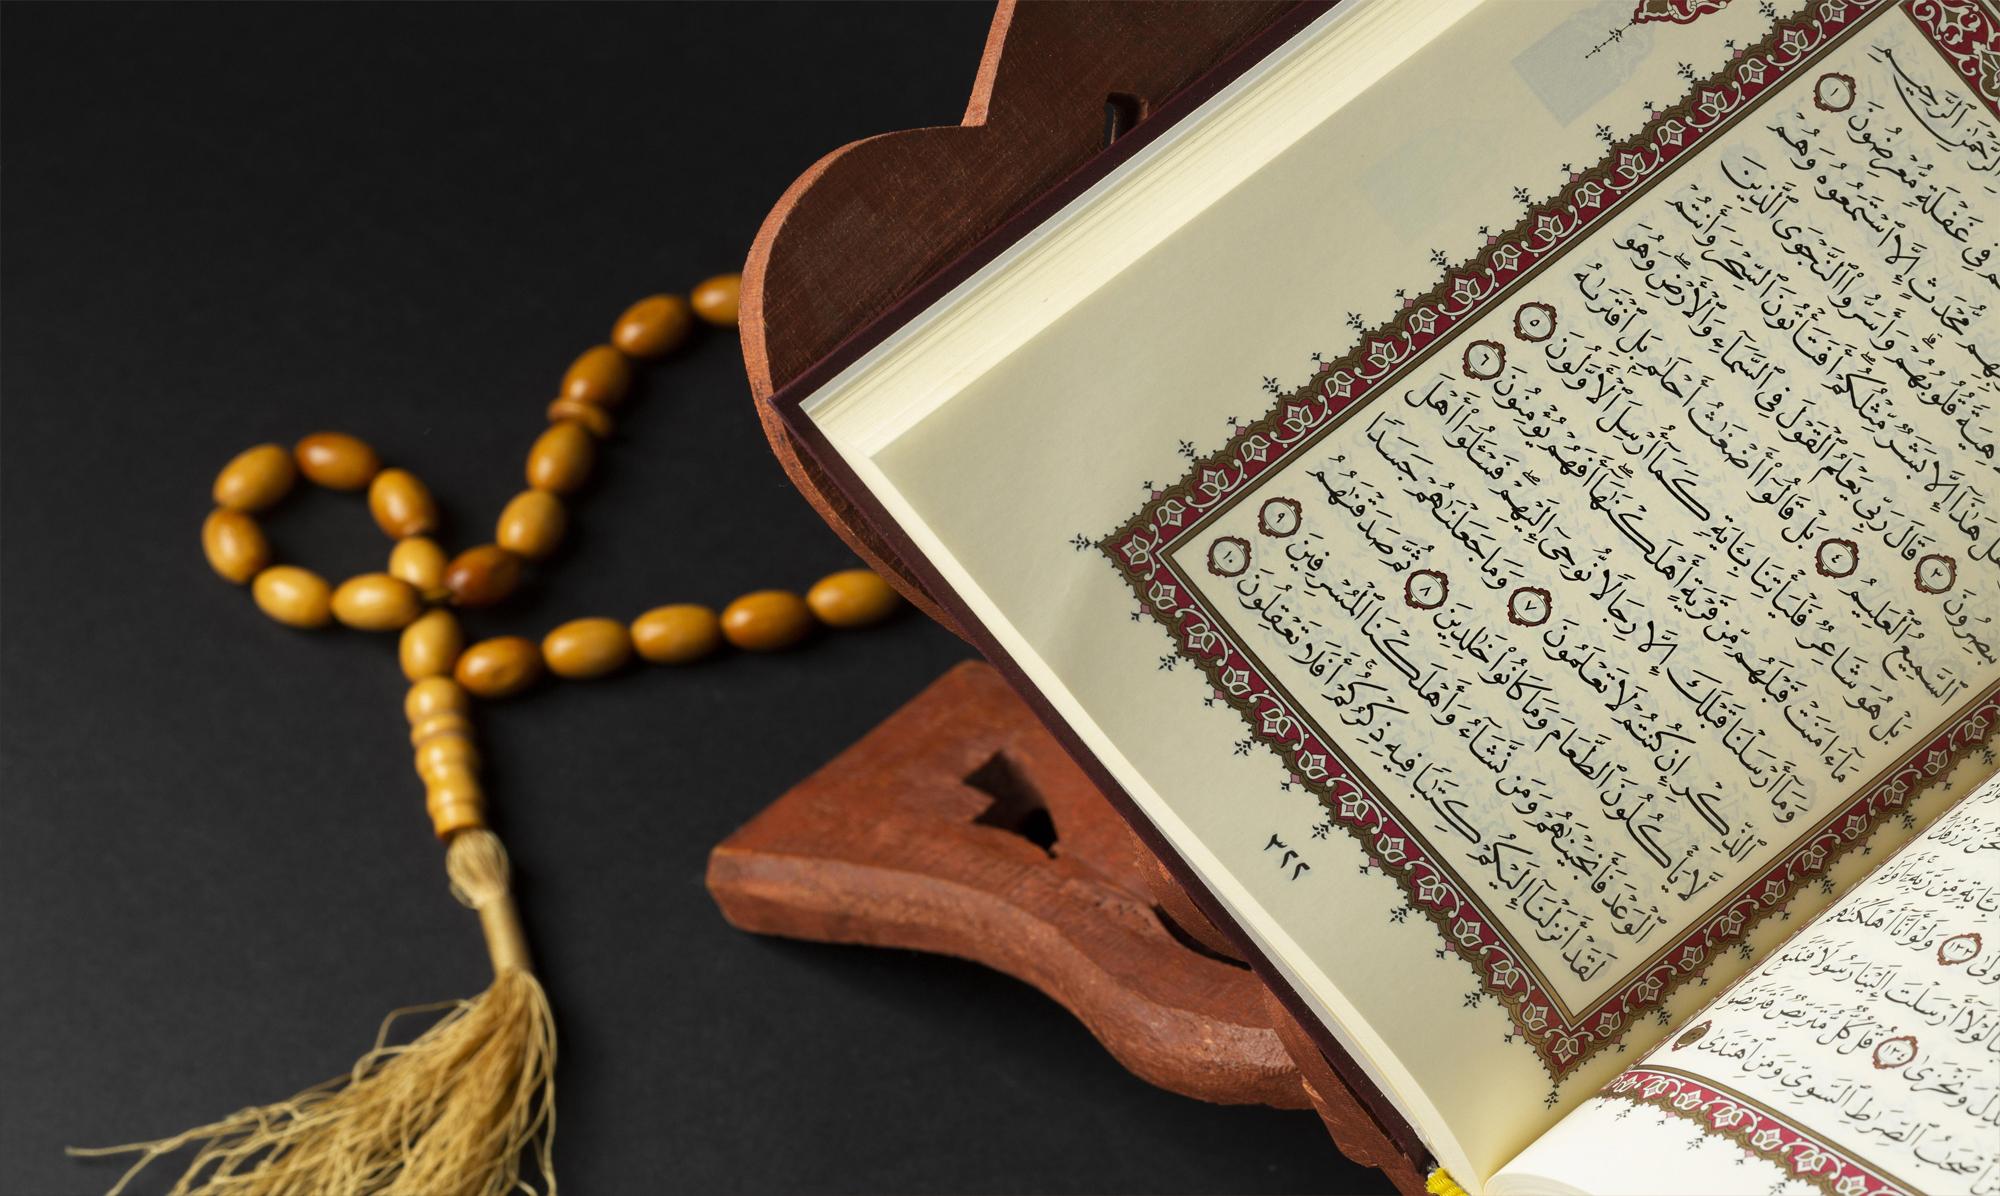 بِـَٔايَةٍ مِّن رَّبِّهِۦٓ أَوَلَمْ
وَلَوْ أَنَّآ أَهْلَكْنَٰهُم ١٣٣
لَوْلَآ أَرْسَلْتَ إِلَيْنَا رَسُولًا فَنَتَّبِعَ
وَنَخْزَىٰ ١٣٤ قُلْ كُلٌّ مُّتَرَبِّصٌ فَتَرَبَّصُوا۟
أَصْحَٰبُ ٱلصِّرَٰطِ ٱلسَّوِىِّ وَمَنِ ٱهْتَدَىٰ
ٱلرَّحْمَٰنِ ٱلرَّحِيمِ
فِى غَفْلَةٍ مُّعْرِضُونَ ١
مُّحْدَثٍ إِلَّا ٱسْتَمَعُوهُ وَهُمْ
قُلُوبُهُمْ وَأَسَرُّوا۟ ٱلنَّجْوَى ٱلَّذِينَ
هَٰذَآ إِلَّا بَشَرٌ مِّثْلُكُمْ أَفَتَأْتُونَ ٱلسِّحْرَ وَأَنتُمْ
٣ قَالَ رَبِّى يَعْلَمُ ٱلْقَوْلَ فِى ٱلسَّمَآءِ وَٱلْأَرْضِ وَهُوَ
ٱلسَّمِيعُ ٱلْعَلِيمُ ٤ بَلْ قَالُوٓا۟ أَضْغَٰثُ أَحْلَٰمٍۭ بَلِ ٱفْتَرَىٰهُ
بَلْ هُوَ شَاعِرٌ فَلْيَأْتِنَا بِـَٔايَةٍ كَمَآ أُرْسِلَ ٱلْأَوَّلُونَ ٥
مَآ ءَامَنَتْ قَبْلَهُم مِّن قَرْيَةٍ أَهْلَكْنَٰهَآ أَفَهُمْ يُؤْمِنُونَ ٦
وَمَآ أَرْسَلْنَا قَبْلَكَ إِلَّا رِجَالًا نُّوحِىٓ إِلَيْهِمْ فَسْـَٔلُوٓا۟ أَهْلَ
ٱلذِّكْرِ إِن كُنتُمْ لَا تَعْلَمُونَ ٧ وَمَا جَعَلْنَٰهُمْ جَسَدًا
لَّا يَأْكُلُونَ ٱلطَّعَامَ وَمَا كَانُوا۟ خَٰلِدِينَ ٨ ثُمَّ صَدَقْنَٰهُمُ
ٱلْوَعْدَ فَأَنجَيْنَٰهُمْ وَمَن نَّشَآءُ وَأَهْلَكْنَا ٱلْمُسْرِفِينَ ٩
لَقَدْ أَنزَلْنَآ إِلَيْكُمْ كِتَٰبًا فِيهِ ذِكْرُكُمْ أَفَلَا تَعْقِلُونَ ١٠
٣٢٢